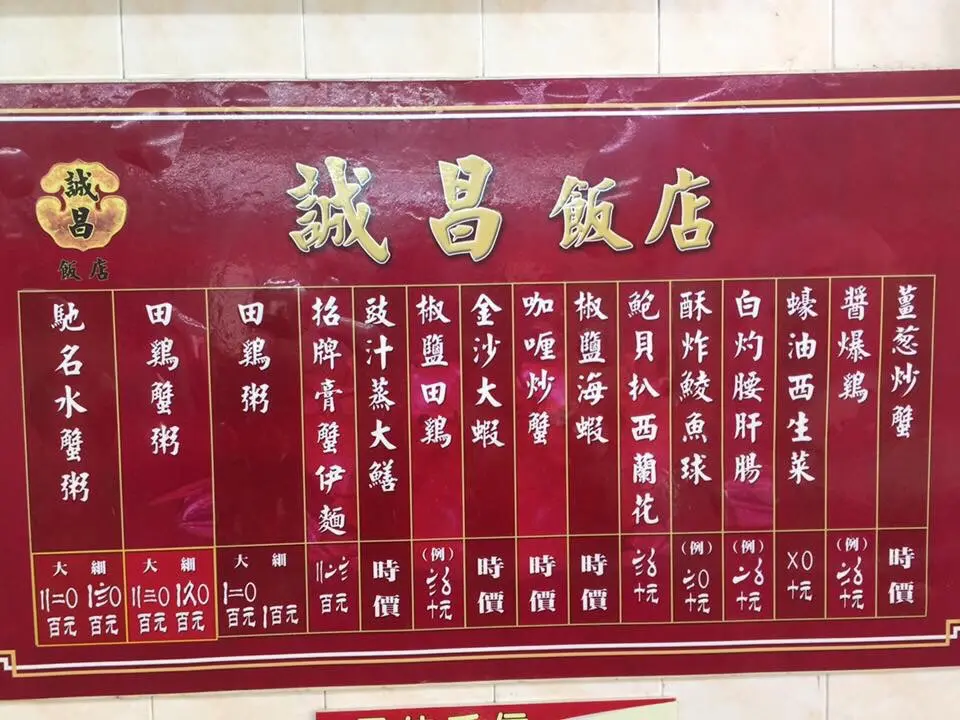 誠昌
飯店
誠昌飯店
薑葱炒蟹
時價
醬爆鷄
(例)
十元
蠔油西生菜
〤〇
十元
白灼腰肝腸
(例)
十元
酥炸鯪魚球
(例)
十元
鮑貝扒西蘭花
十元
椒鹽海蝦
時價
咖喱炒蟹
時價
金沙大蝦
時價
椒鹽田鷄
(例)
十元
豉汁蒸大鱔
時價
招牌膏蟹伊麵
百元
田鷄粥
大 細
〡二〇
百元 〡百元
田鷄蟹粥
大 細
〢三〇 〡〩〇
百元 百元
馳名水蟹粥
大 細
〢二〇 〡三〇
百元 百元